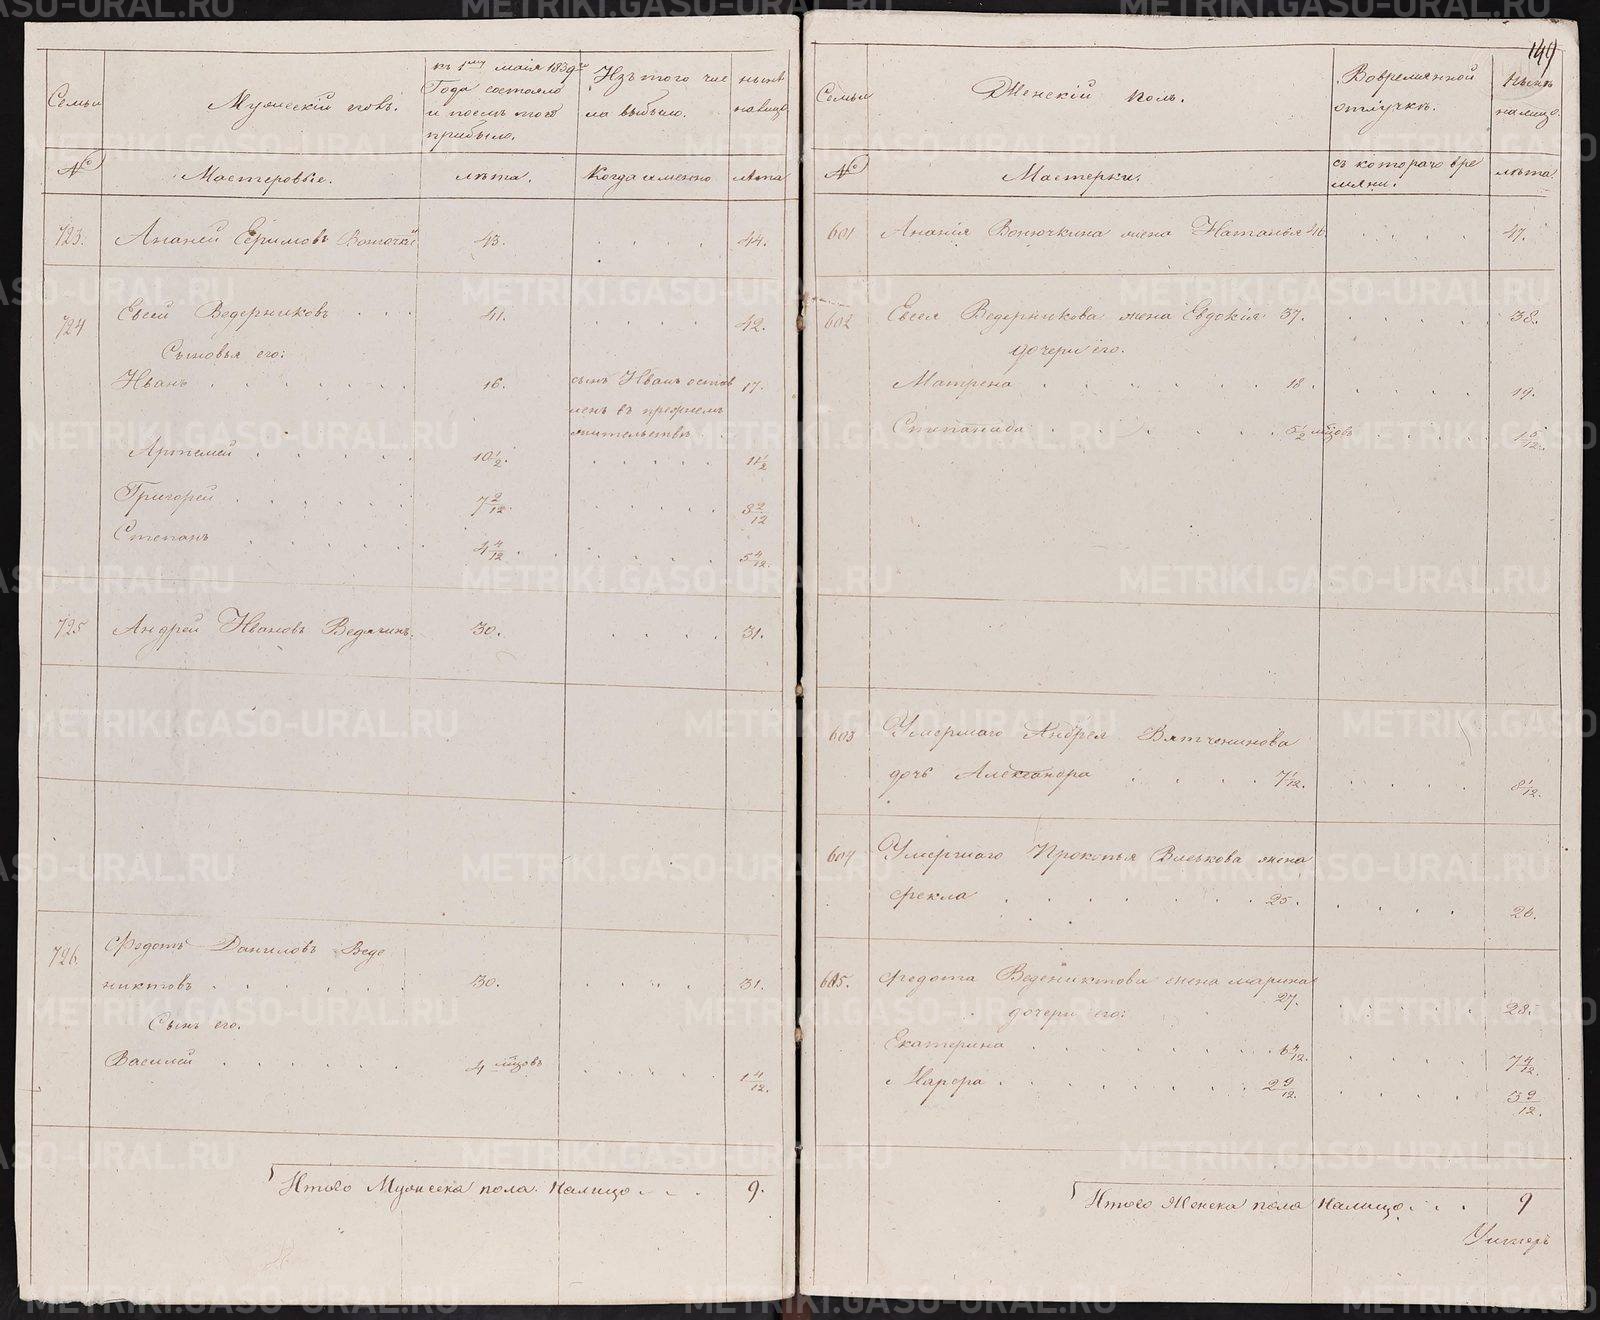 Семьи
Мужескій полъ.
къ 1му маія 1839го
Года состояло
и послѣ того
прибыло.
Изъ того чис
ла выбыло.
нынѣ
налицо
№
Мастеровые.
лѣта.
Когда именно
лѣта
723.
Ананей Ефимовъ
43.
44.
724
Евсей Ведерниковъ
41.
42.
Сыновья его:
Иванъ
16.
сынъ Иванъ остав
ленъ въ прежнемъ
жительствѣ
17.
Артемей
10 1/2.
11 1/2
Григорей
7 2/12.
8 2/12
Степанъ
4 4/12.
5 4/12.
725
Андрей Ивановъ
30.
31.
726.
Федотъ Даниловъ Веде
никтовъ
30.
31.
Сынъ его.
Василей
4 мцовъ
1 4/12.
Итого Мужеска пола налицо
9.
149
Семьи
Женскій полъ.
Вовремянной
отлучкѣ.
нынѣ
налицо.
№
Мастерки.
съ котораго вре
мяни.
лѣта
601
Ананія Вонючкина жена Наталья 46.
47.
602
Евсея Ведерникова жена Евдокія 37.
38.
дочери его.
Матрена
18.
19.
Степанида
5 1/2 мцовъ
1 5/12.
603
Умершаго Андрея Вятченинова
дочь Александра
7 1/12.
8 1/12.
604
Умершаго Прокопья Власкова жена
Фекла
25.
26.
605.
Федота Веденктова жена марина
27.
28.
дочери его:
Екатерина
6 4/12.
7 4/12.
Марфа
2 9/12.
3 9/12.
Итого Женска пола Налицо
9
METRIKI.GASO-URAL.RU